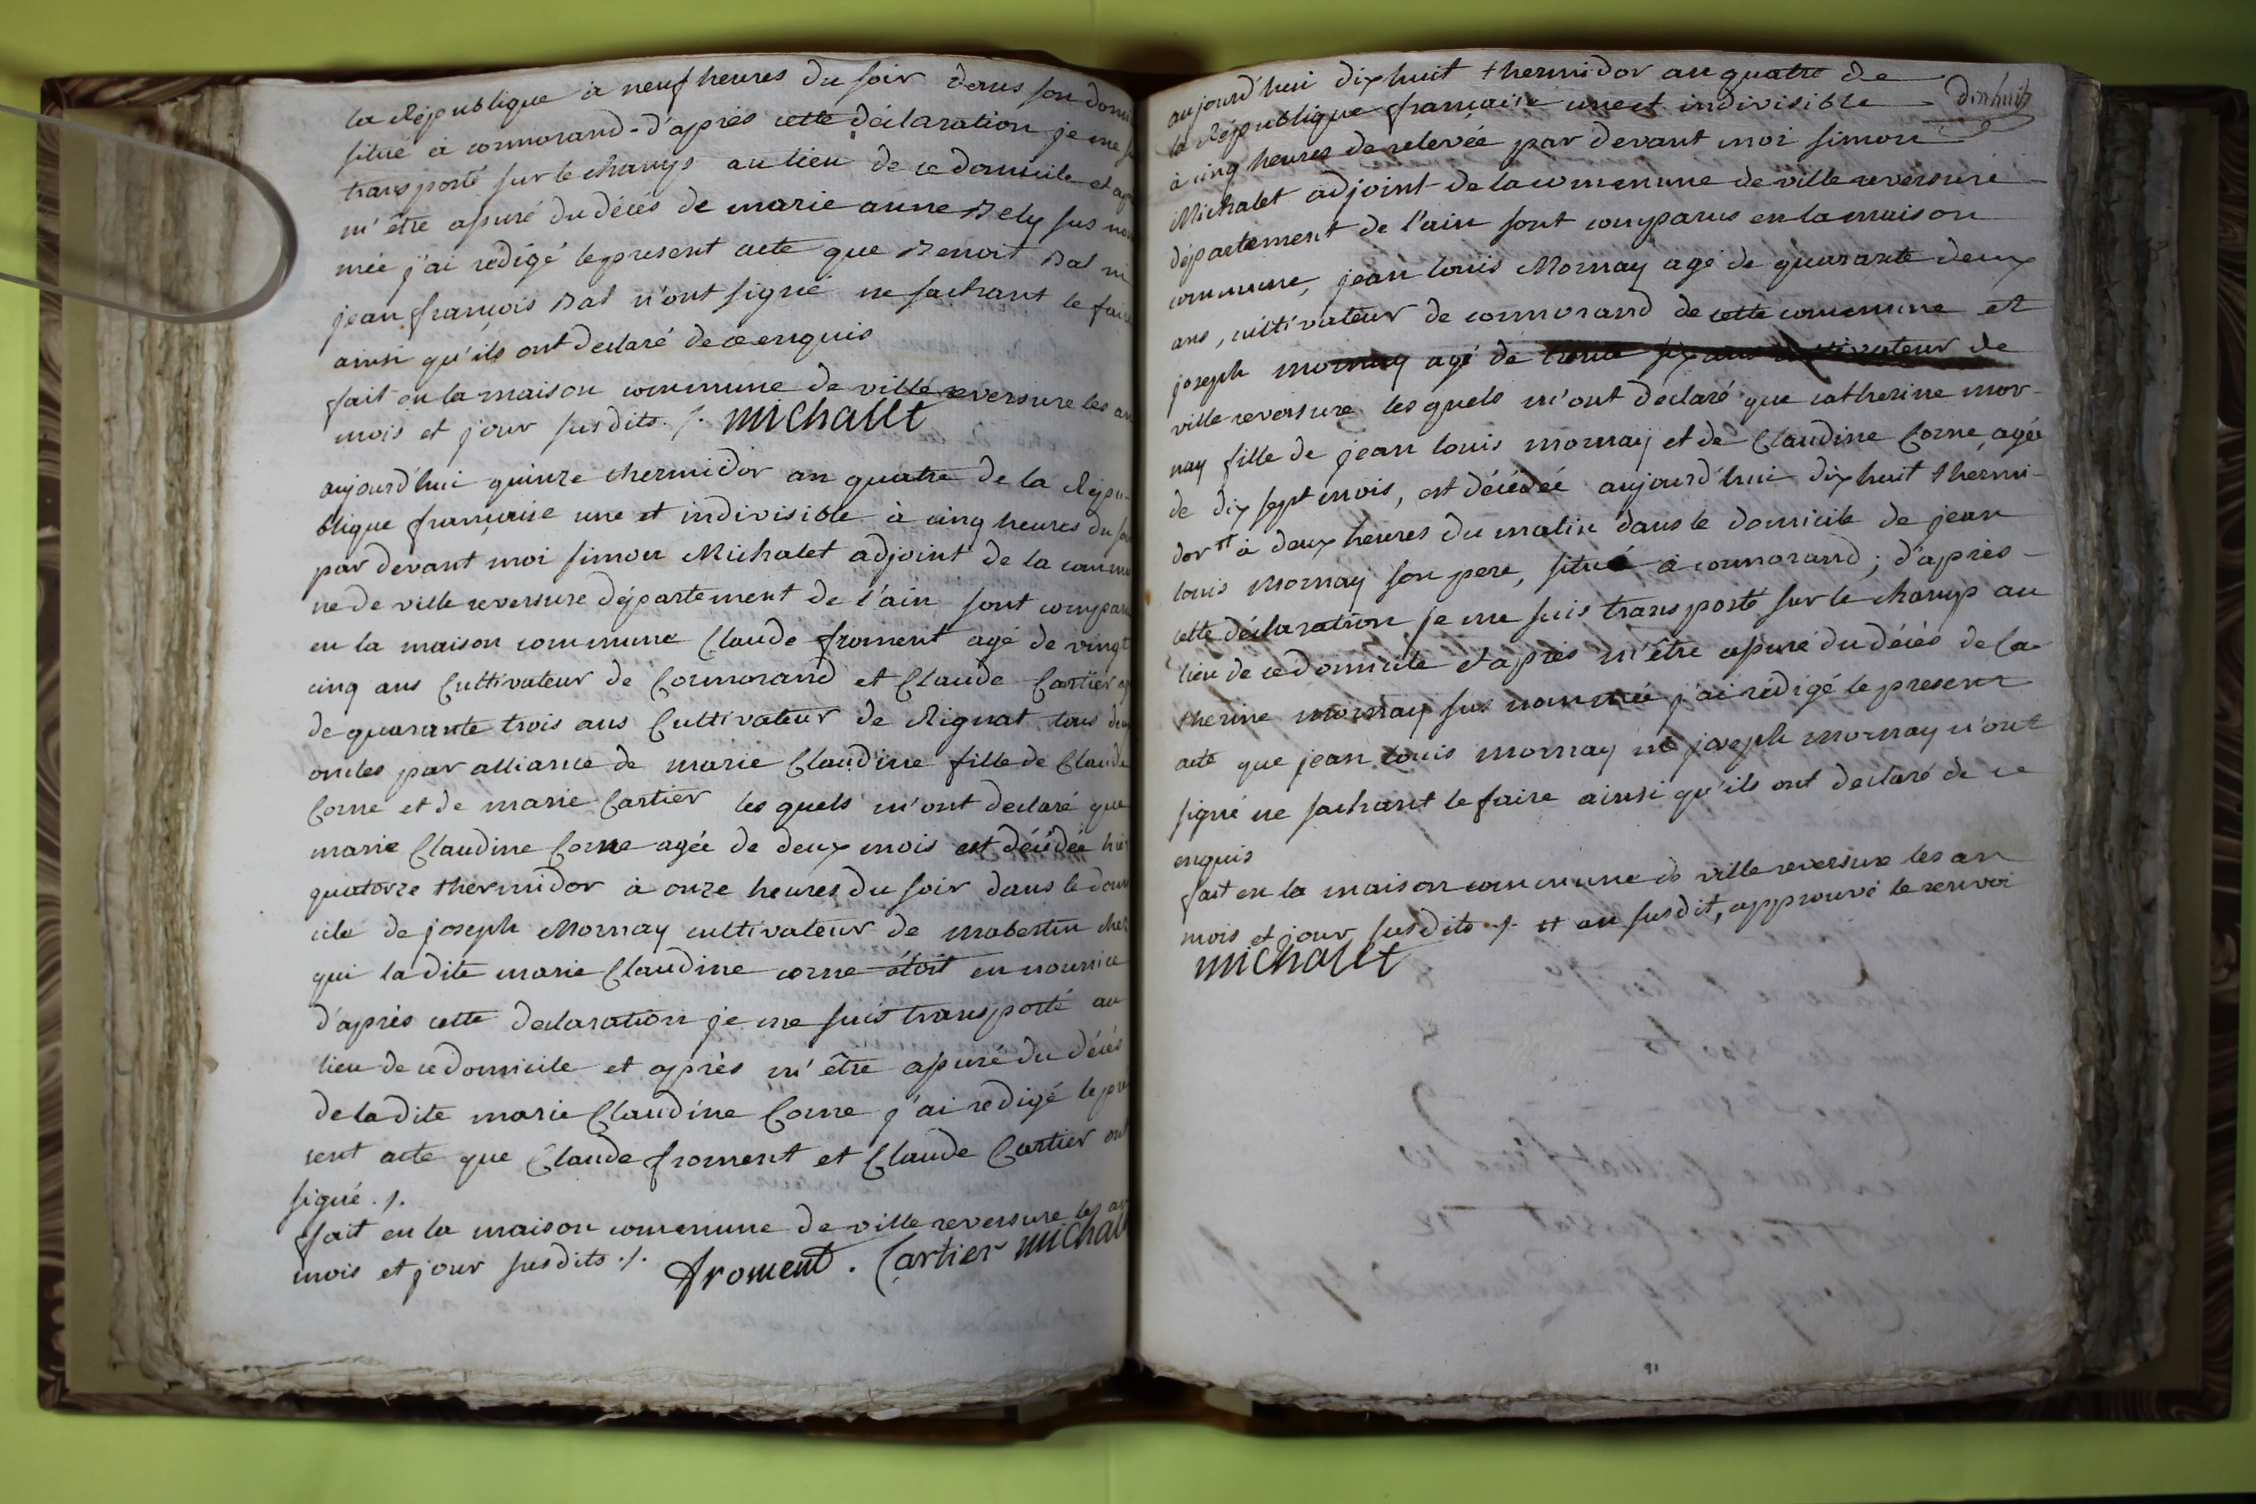 la République à neuf heures du soir dans son domi
situé à cormorand - d'après cette déclaration je me s
transporté sur le champs au lieu de ce domicile et ap
m'être assuré du décès de marie anne Bely sus nom
mée j'ai rédigé le present acte que Benoit Bal ni
jean françois Bal n'ont signé ne sachant le faire
ainsi qu'ils ont declaré de ce enquis
fait en la maison commune de ville reversure les an
mois et jour susdits ./. michallt
aujourd'hui quinze thermidor an quatre de la Répu-
blique française une et indivisible à cinq heures du so
par devant moi simon Michalet adjoint de la commu
ne de ville reversure département de l'ain sont compar
en la maison commune Claude froment agé de vingt
cinq ans Cultivateur de Cormorand et Claude Cartier ag
de quarante trois ans Cultivateur de Rignat tous deu
oncles par alliance de marie Claudine fille de Claude
Corne et de marie Cartier les quels m'ont declaré que
marie Claudine Corne agée de deux mois est décédée hier
quatorze thermidor à onze heures du soir dans le domi
cile de joseph Mornay cultivateur de mabestin chez
qui la dite marie Claudine corne étoit en nourrice
d'après cette declaration je me suis transporté au
lieu de ce domicile et après m'être assuré du décès
de la dite marie Claudine Corne j'ai redigé le pre
sent acte que Claude froment et Claude Cartier ont
signé ./.
fait en la maison commune de ville reversure les an
mois et jour susdits ./. froment . Cartier michal
aujourd'hui dix huit thermidor an quatre de
la République française une et indivisible - dixhuit
à cinq heures de relevée par devant moi simon
Michalet adjoint de la commune de ville reversure
département de l'ain sont comparus en la maison
commune, jean louis Mornay agé de quarante deux
ans, cultivateur de cormorand de cette commune et
joseph mornay agé de trente six ans cultivateur de
ville reversure les quels m'ont declaré que catherine mor-
nay fille de jean louis mornay et de Claudine Corne, agée
de dix sept mois, est décédée aujourd'hui dix huit thermi-
dor # à deux heures du matin dans le domicile de jean
louis mornay son pere, situé à cormorand; d'après
cette déclaration je me suis transporté sur le champ au
lieu de ce domicile et après m'être assuré du décès de Ca-
therine mornay sus nommée j'ai rédigé le present
acte que jean louis mornay ni joseph mornay n'ont
signé ne sachant le faire ainsi qu'ils ont declaré de ce
enquis
fait en la maison commune de ville reversure les an
mois et jour susdits ./. # an susdit, approuvé le renvoi
michallt